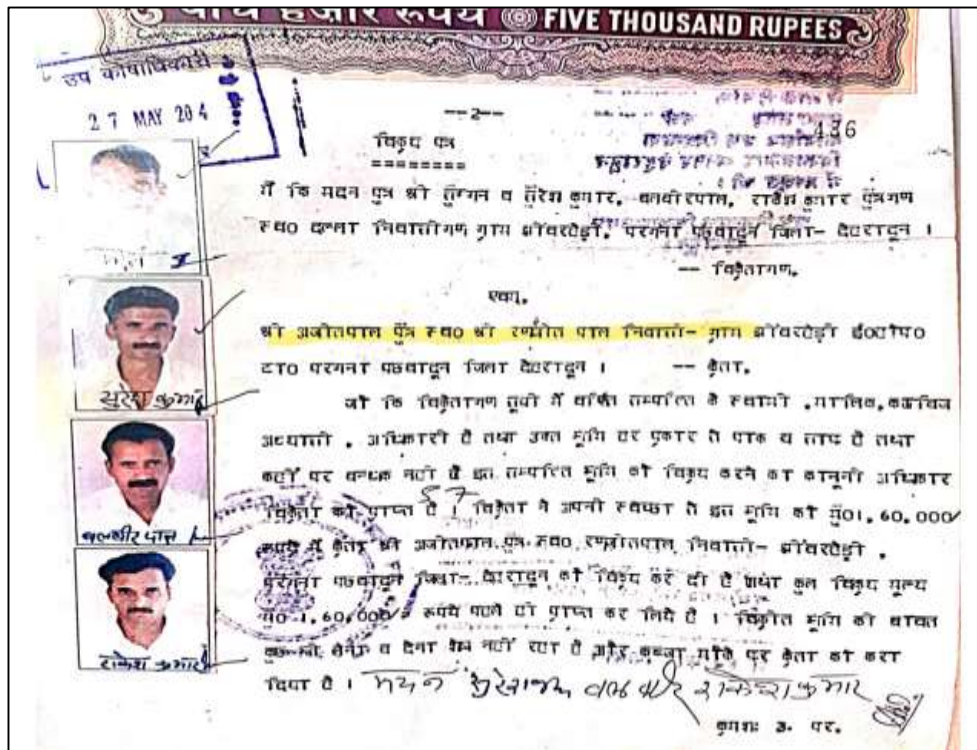 पाँच हजार रूपये FIVE THOUSAND RUPEES
उप कोषाधिकारी
27 MAY 204
--2--
436
विक्रय पत्र
========
मैं कि मदन पुत्र श्री तुंगन व सुरेश कुमार, बलबीरपाल, राकेश कुमार पुत्रगण
स्व0 दल्ला निवासीगण ग्राम झीवरहेड़ी, परगना पछवादून जिला- देहरादून ।
-- विक्रेतागण.
एवम्,
श्री अजीतपाल पुत्र स्व0 श्री रणजीत पाल निवासी- ग्राम झीवरहेड़ी ई0हो0प0
टा0 परगना पछवादून जिला देहरादून । -- क्रेता.
जो कि विक्रेतागण सूची में वर्णित सम्पत्ति के स्वामी ,मालिक,काबिज
अध्यासी , अधिकारी है तथा उक्त भूमि हर प्रकार से पाक व साफ है तथा
कहीं पर बन्धक नहीं है इस सम्पत्ति भूमि को विक्रय करने का कानूनी अधिकार
विक्रेता को प्राप्त है । विक्रेता ने अपनी स्वेच्छा से इस भूमि को मु01,60,000/
रूपये में क्रेता श्री अजीतपाल पुत्र स्व0 रणजीतपाल निवासी- झीवरहेड़ी ,
परगना पछवादून जिला- देहरादून को विक्रय कर दी है तथा कुल विक्रय मूल्य
मु0 1,60,000/= रूपये पहले ही प्राप्त कर लिये है । विक्रीत भूमि की बाबत
कुछ भी लेना व देना शेष नहीं रहा है और कब्जा मौके पर क्रेता का करा
दिया है । मदन सुरेश कुमार बलबीर राकेश कुमार
क्रमशः 3. पर.
सुरेश कुमार
बलबीर पाल
राकेश कुमार